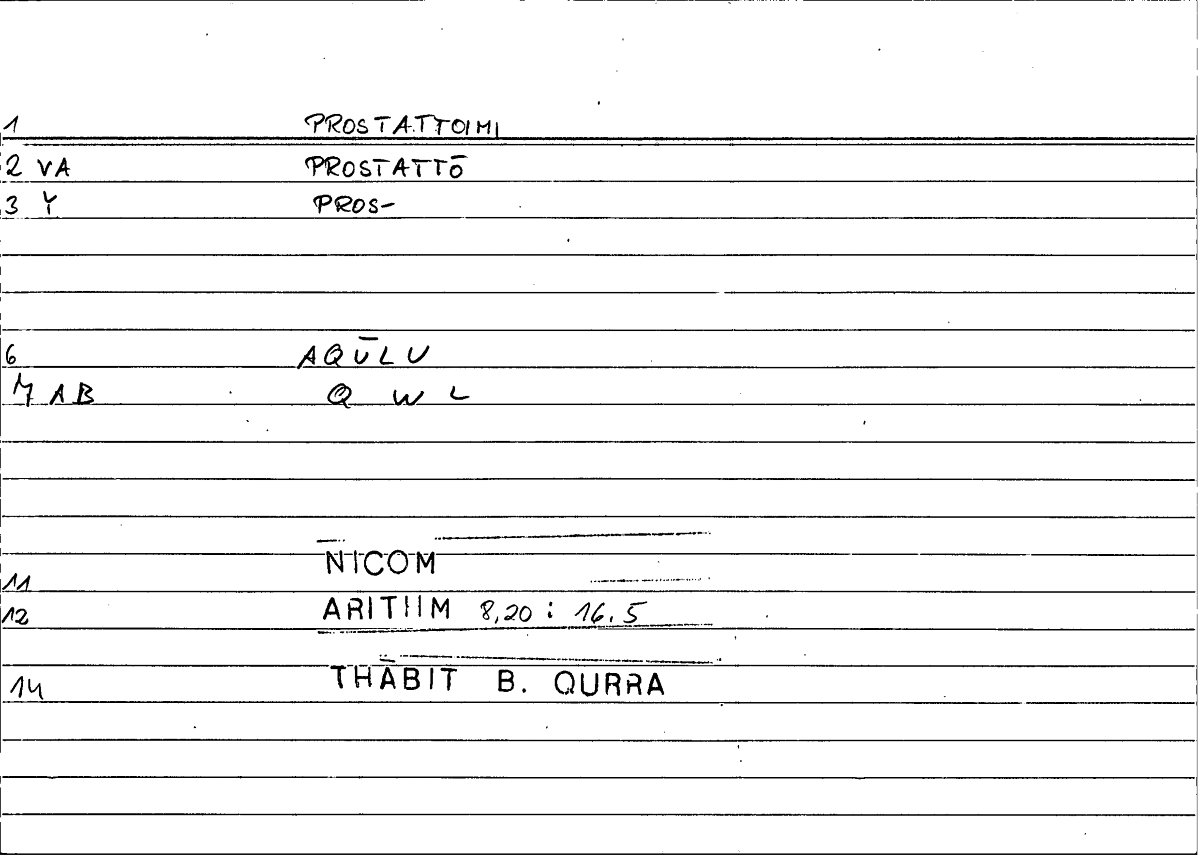 1 PROSTATTOIMI
2 VA PROSTATTŌ
3 Y PROS-
6 AQŪLU
7 AB Q W L
11 NICOM
12 ARITHM 8,20 : 16.5
14 THĀBIT B. QURRA